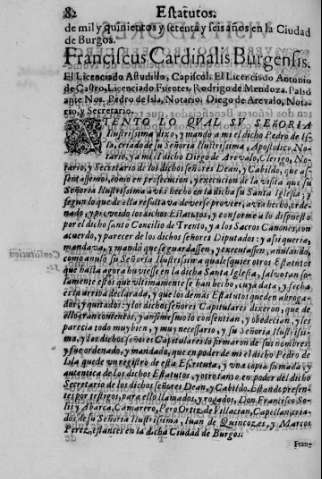 82 Estatutos.
de mil y quinientos y setenta y seis años en la Ciudad
de Burgos.
Franciscus Cardinalis Burgensis.
El Licenciado Astudillo, Capiscol. El Licenciado Antonio
de Castro, Licenciado Fuentes, Rodrigo de Mendoza. Passò
ante Nos. Pedro de Isla, Notario. Diego de Arevalo, Nota-
rio, y Secretario.
TENTO LO QUAL SU SEÑORIA
Ilustrissima dixo, y mandò a mi el dicho Pedro de Is-
la, criado de su Señoria Ilustrissima, Apostolico No-
tario, y a mi el dicho Diego de Arevalo, Clerigo, No-
tario, y Secretario de los dichos señores Dean, y Cabildo, que as-
sentassemos, como en prosecucion, y execucion de la visita que su
Señoria Ilustrissima avia hecho en la dicha su Santa Iglesia, y
segun lo que de ella resultava de verse proveer, avia hecho, orde-
nado, y proveido los dichos Estatutos, y conforme a lo dispuesto
por el dicho santo Concilio de Trento, y a los Sacros Canones, con
acuerdo, y parecer de los dichos señores Diputados: y assi queria,
mandava, y mandò que se guardassen, y executassen, anulando,
como anulò su Señoria Ilustrissima qualesquier otros Estatutos
que hasta agora huviesse en la dicha Santa Iglesia, salvo tan so-
lamente estos que vitimamente se han hecho, cuya data, y fecha
està arriba declarada, y que los demàs Estatutos queden abroga-
dos, y quitados: y los dichos señores Capitulares dixeron, que de
ello eran contentos, y assimismo lo consentian, y obedecian, y les
parecia todo muy bien, y muy necessario, y su Señoria Ilustrissi-
ma, y los dichos señores Capitulares lo firmaron de sus nombres,
y fue ordenado, y mandado, que en poder de mi el dicho Pedro de
Isla quede un registro de esta Escritura, y una copia firmada, y
autentica de los dichos Estatutos, y otro tanto en poder del dicho
Secretario de los dichos señores Dean, y Cabildo. Estando presen-
tes por testigos, para ello llamados, y rogados, Don Francisco So-
lis y Abarca, Camarero, Pero Ortiz de Villacian, Capellan, cria-
dos de su Señoria Ilustrissima, Juan de Quincozes, y Marcos
Perez, estantes en la dicha Ciudad de Burgos.
Franz